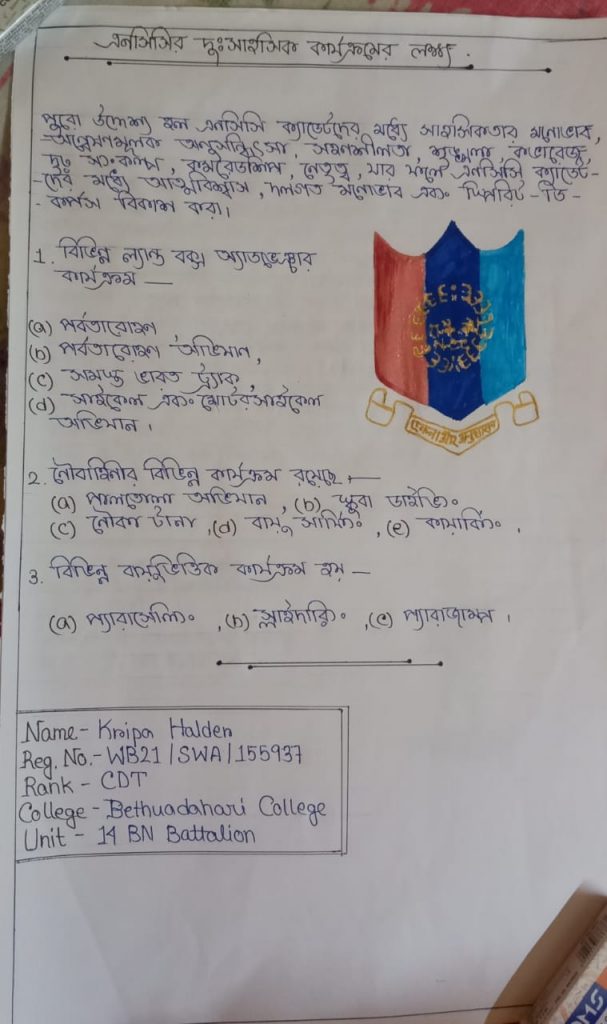 এনসিসির দুঃসাহসিক কার্যক্রমের লক্ষ্য.
পুরো উদ্দেশ্য হল এনসিসি ক্যাডেটদের মধ্যে সাহসিকতার মনোভাব,
অন্বেষণমূলক অনুসন্ধিৎসা, সহনশীলতা, শৃঙ্খলা,
দৃঢ় সংকল্প, কমরেডশিপ, নেতৃত্ব, যার ফলে এনসিসি ক্যাডেট-
-দের মধ্যে আত্মবিশ্বাস, দলগত মনোভাব এবং স্পিরিট-ডি-
-কর্পস বিকাশ করা।
1. বিভিন্ন ল্যান্ড বক্স অ্যাডভেঞ্চার
কার্যক্রম —
(a) পর্বতারোহন,
(b) পর্বতারোহন অভিযান,
(c) সমস্ত ভারত ট্র্যাক,
(d) সাইকেল এবং মোটরসাইকেল
অভিযান।
2. নৌবাহিনীর বিভিন্ন কার্যক্রম রয়েছে —
(a) পালতোলা অভিযান, (b) স্কুবা ডাইভিং
(c) নৌকা টানা, (d) বায়ু সার্ফিং, (e) কায়াকিং,
3. বিভিন্ন বায়ুভিত্তিক কার্যক্রম হয় —
(a) প্যারাসেলিং, (b) স্লাইদারিং, (c) প্যারাজাম্প।
Name - Kripa Halder
Reg. No. - WB21/SWA/155937
Rank - CDT
College - Bethuadahari College
Unit - 14 BN Battalion